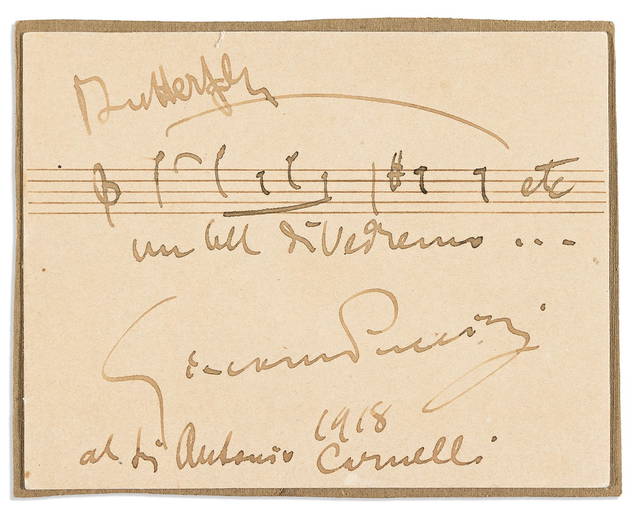 Butterfly
etc
un bel dì Vedremo ...
Giacomo Puccini
1918
al Sig Antonio Cornelli